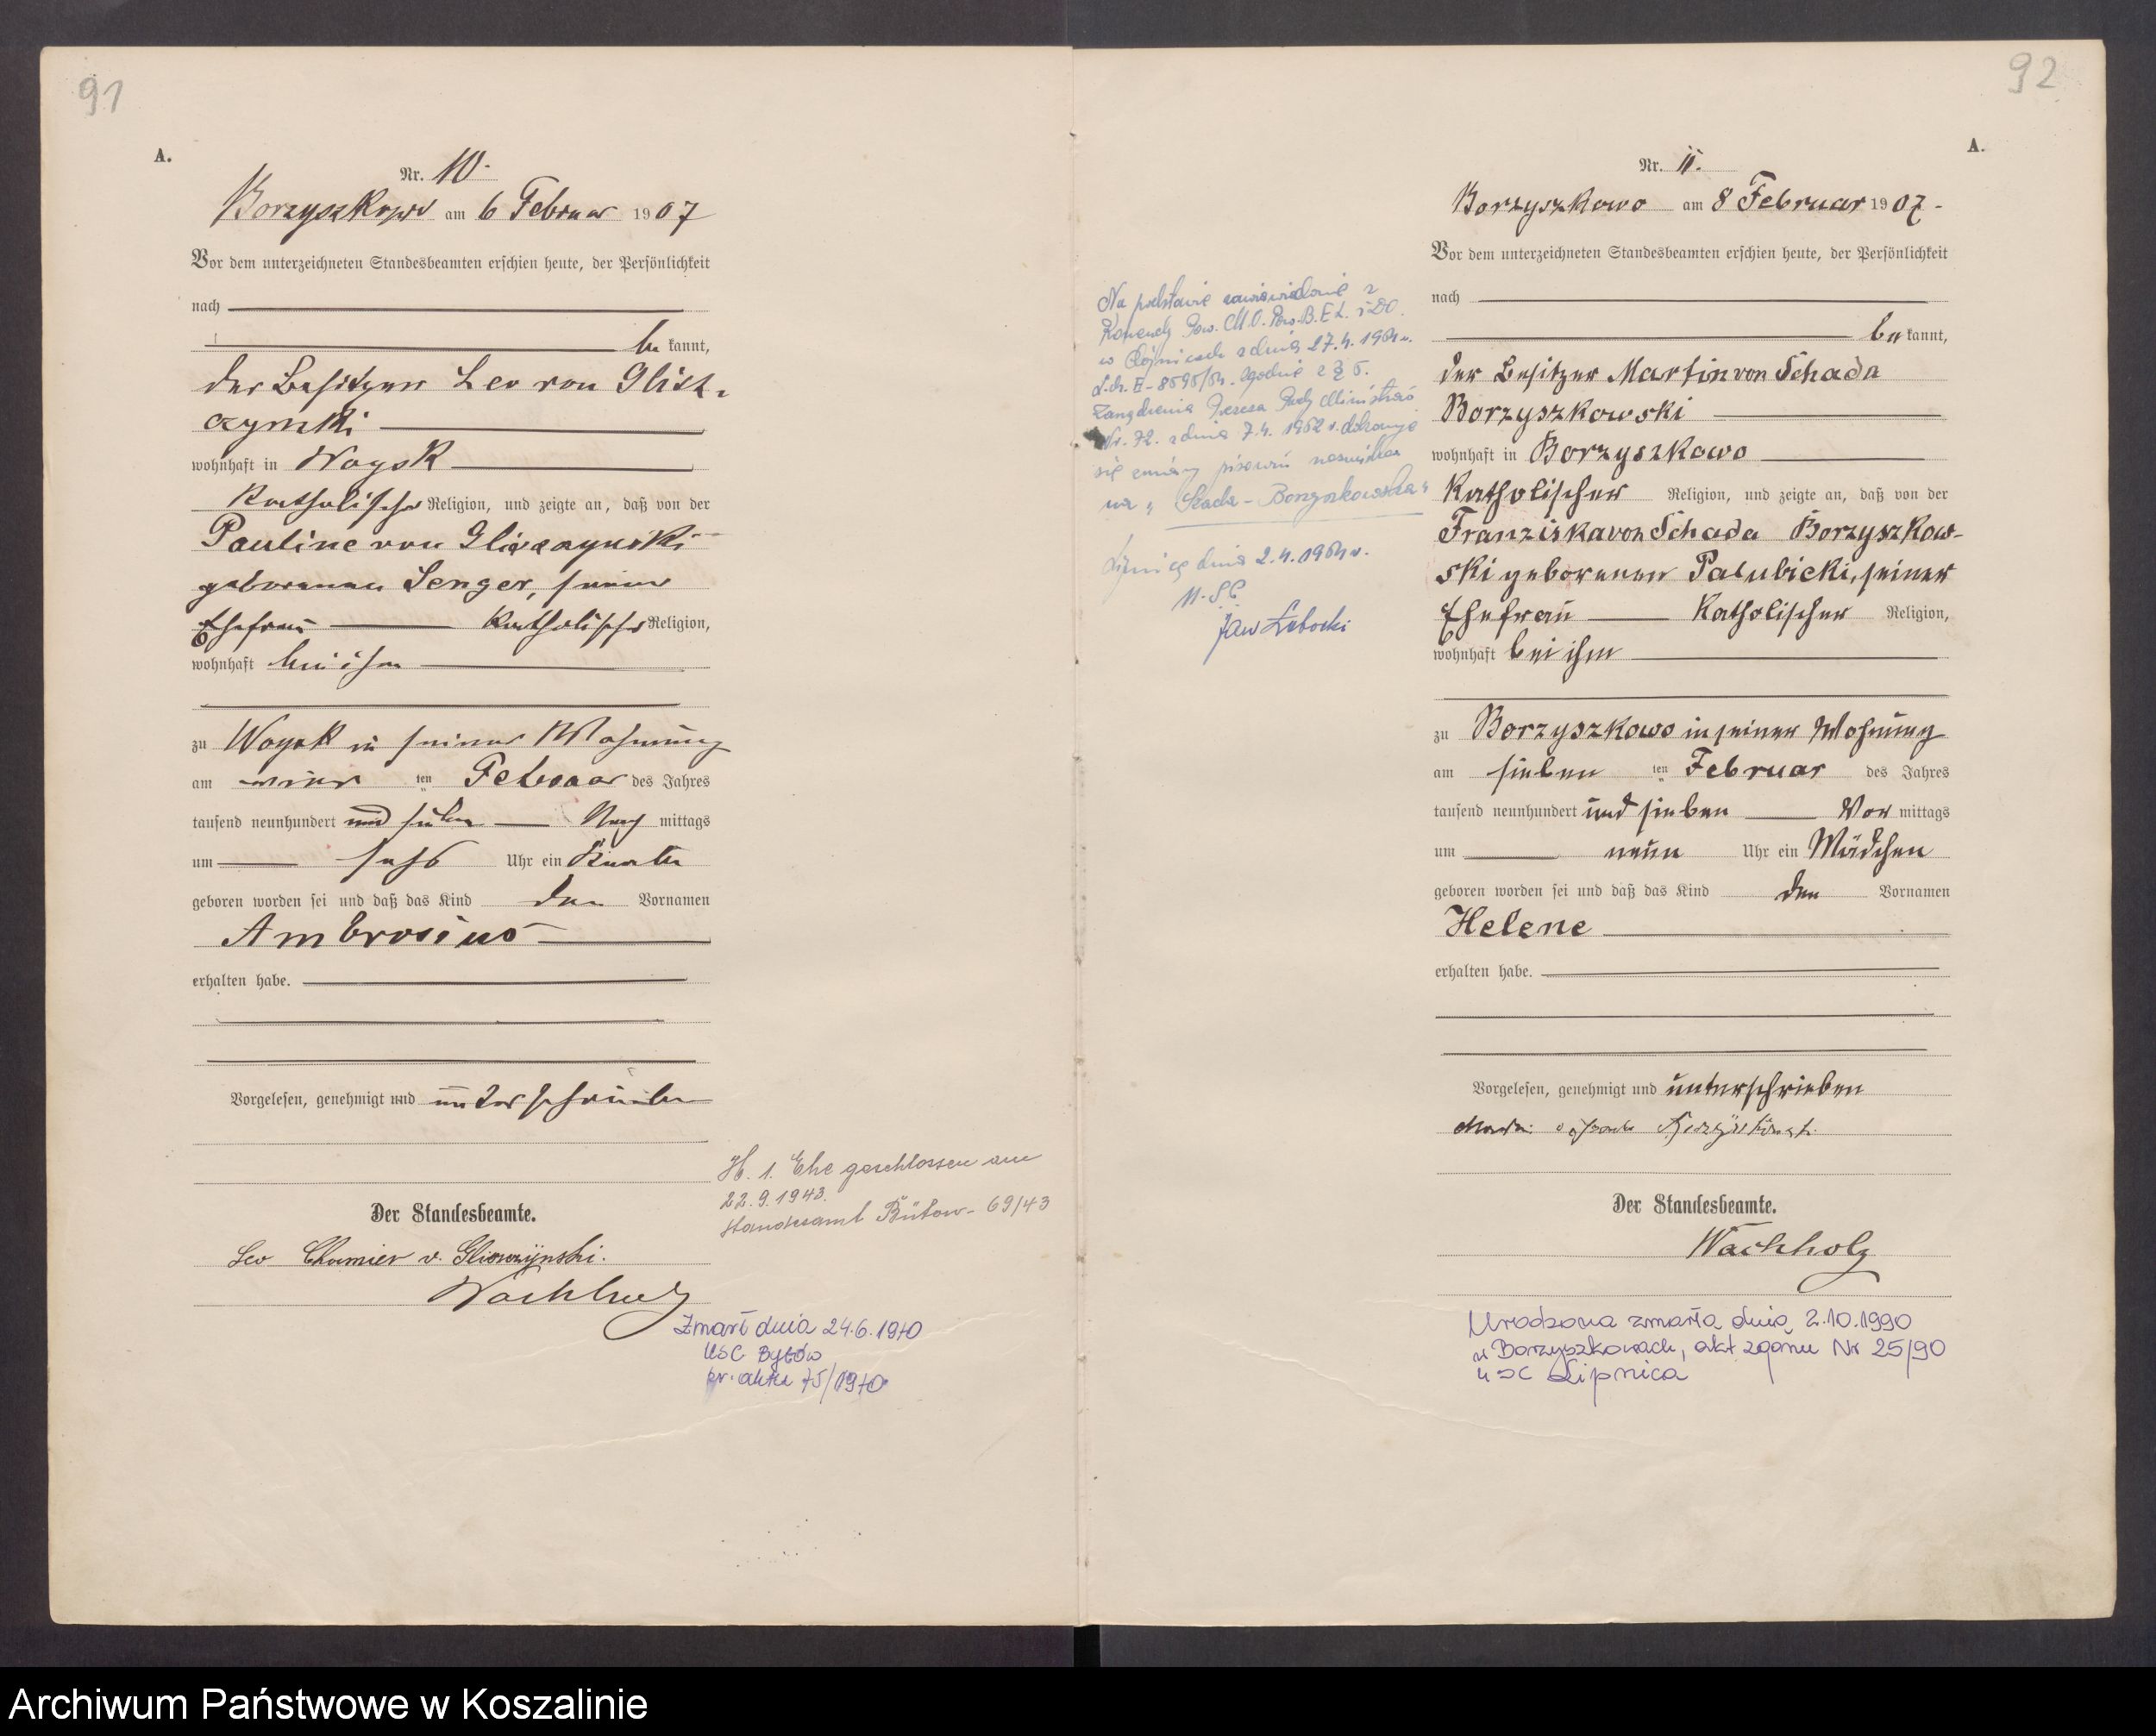 91
A.
Nr. 10.
Borzyszkowo am 6 Februar 1907
Vor dem unterzeichneten Standesbeamten erschien heute, der Persönlichkeit
nach
be kannt,
der Besitzer Leo von Glisz-
czynski
wohnhaft in Woysk
katholischer Religion, und zeigte an, daß von der
Pauline von Gliszczynski
geborenen Senger, seiner
Ehefrau katholischer Religion,
wohnhaft bei ihm
zu Woysk in seiner Wohnung
am vier ten Februar des Jahres
tausend neunhundert und sieben Nach mittags
um sechs Uhr ein Knabe
geboren worden sei und daß das Kind den Vornamen
Ambrosius
erhalten habe.
Vorgelesen, genehmigt und unterschrieben
Der Standesbeamte.
Leo Chamier v. Glisczynski.
Wachholz
H. 1. Ehe geschlossen am
22.9.1943.
Standesamt Bütow - 69/43
Zmarł dnia 24.6.1970
USC Bytów
nr. aktu 75/1970
92
A.
Nr. 11.
Borzyszkowo am 8 Februar 1907-
Vor dem unterzeichneten Standesbeamten erschien heute, der Persönlichkeit
nach
be kannt,
der Besitzer Martin von Schada
Borzyszkowski
wohnhaft in Borzyszkowo
katholischer Religion, und zeigte an, daß von der
Franziska von Schada Borzyszkow-
ski geborenen Palubicki, seiner
Ehefrau katholischer Religion,
wohnhaft bei ihm
zu Borzyszkowo in seiner Wohnung
am sieben ten Februar des Jahres
tausend neunhundert und sieben Vor mittags
um neun Uhr ein Mädchen
geboren worden sei und daß das Kind den Vornamen
Helene
erhalten habe.
Vorgelesen, genehmigt und unterschrieben
Der Standesbeamte.
Wachholz
Na podstawie z
Pow. M.O.
w Chojnicach z dnia 27.4.
zgodnie z § 5.
Zarządzenia Prezesa Rady Ministrów
Nr. 72. z dnia 7.4. 1952 r. dokonuje
się zmiany pisowni nazwiska
na "Szada - Borzyszkowska"
Lipnica dnia 2.4.
U.S.C.
Jan
Urodzona zmarła dnia 2.10.1990
w Borzyszkowach, akt zgonu Nr 25/90
USC Lipnica
Archiwum Państwowe w Koszalinie